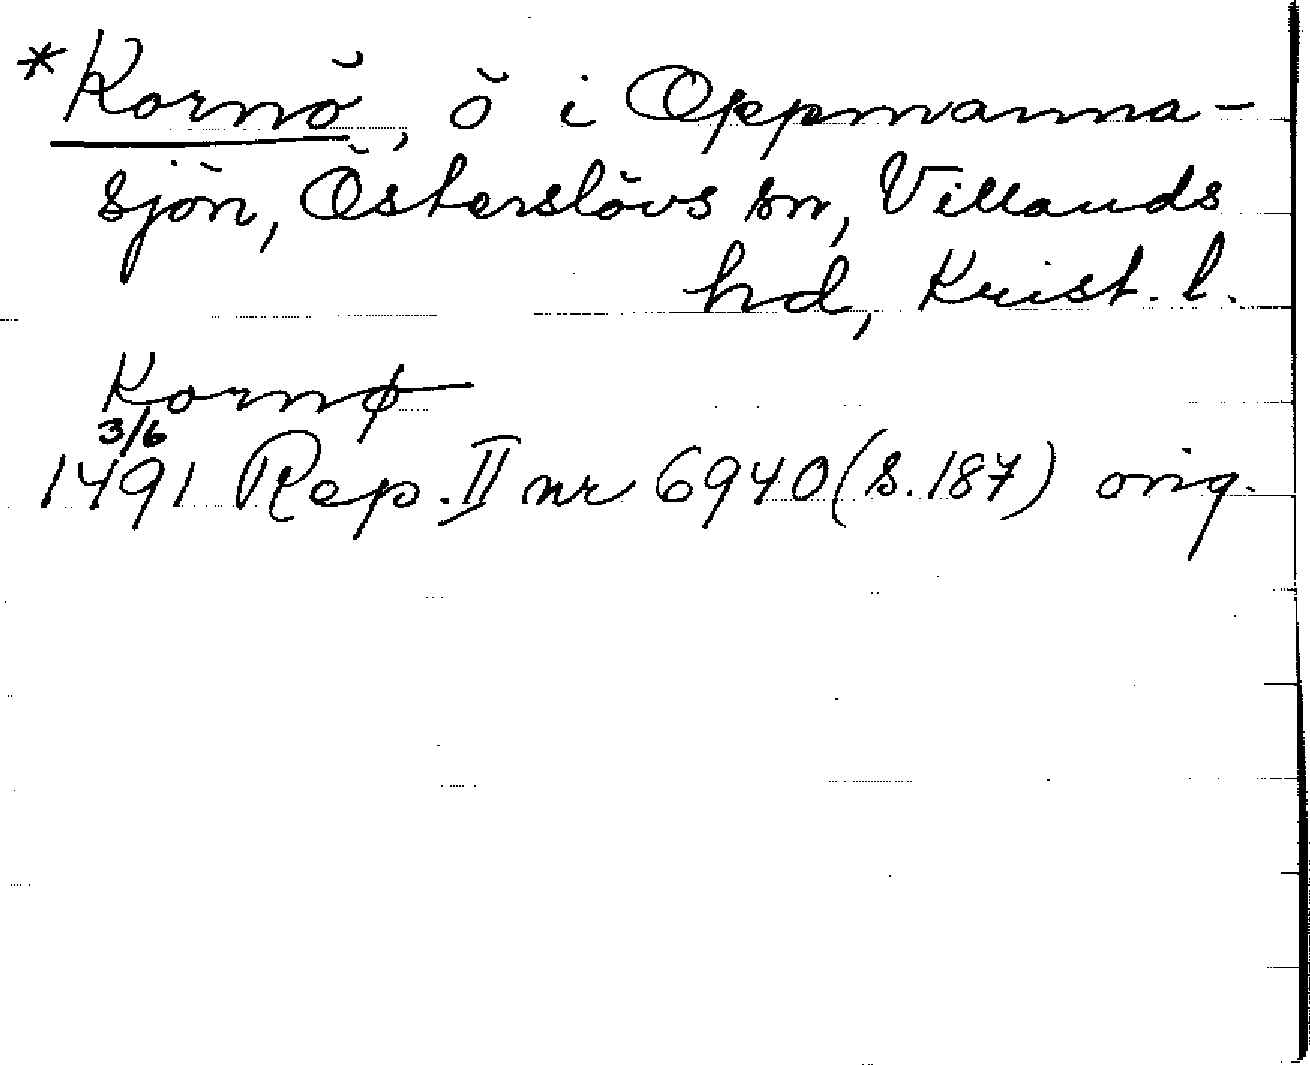 *Kornö, ö i Oppmanna-
sjön, Österslövs sn, Villands
hd, Krist. l.
Kornø
3/6
1491 Rep. II nr 6940 (s. 187) orig.